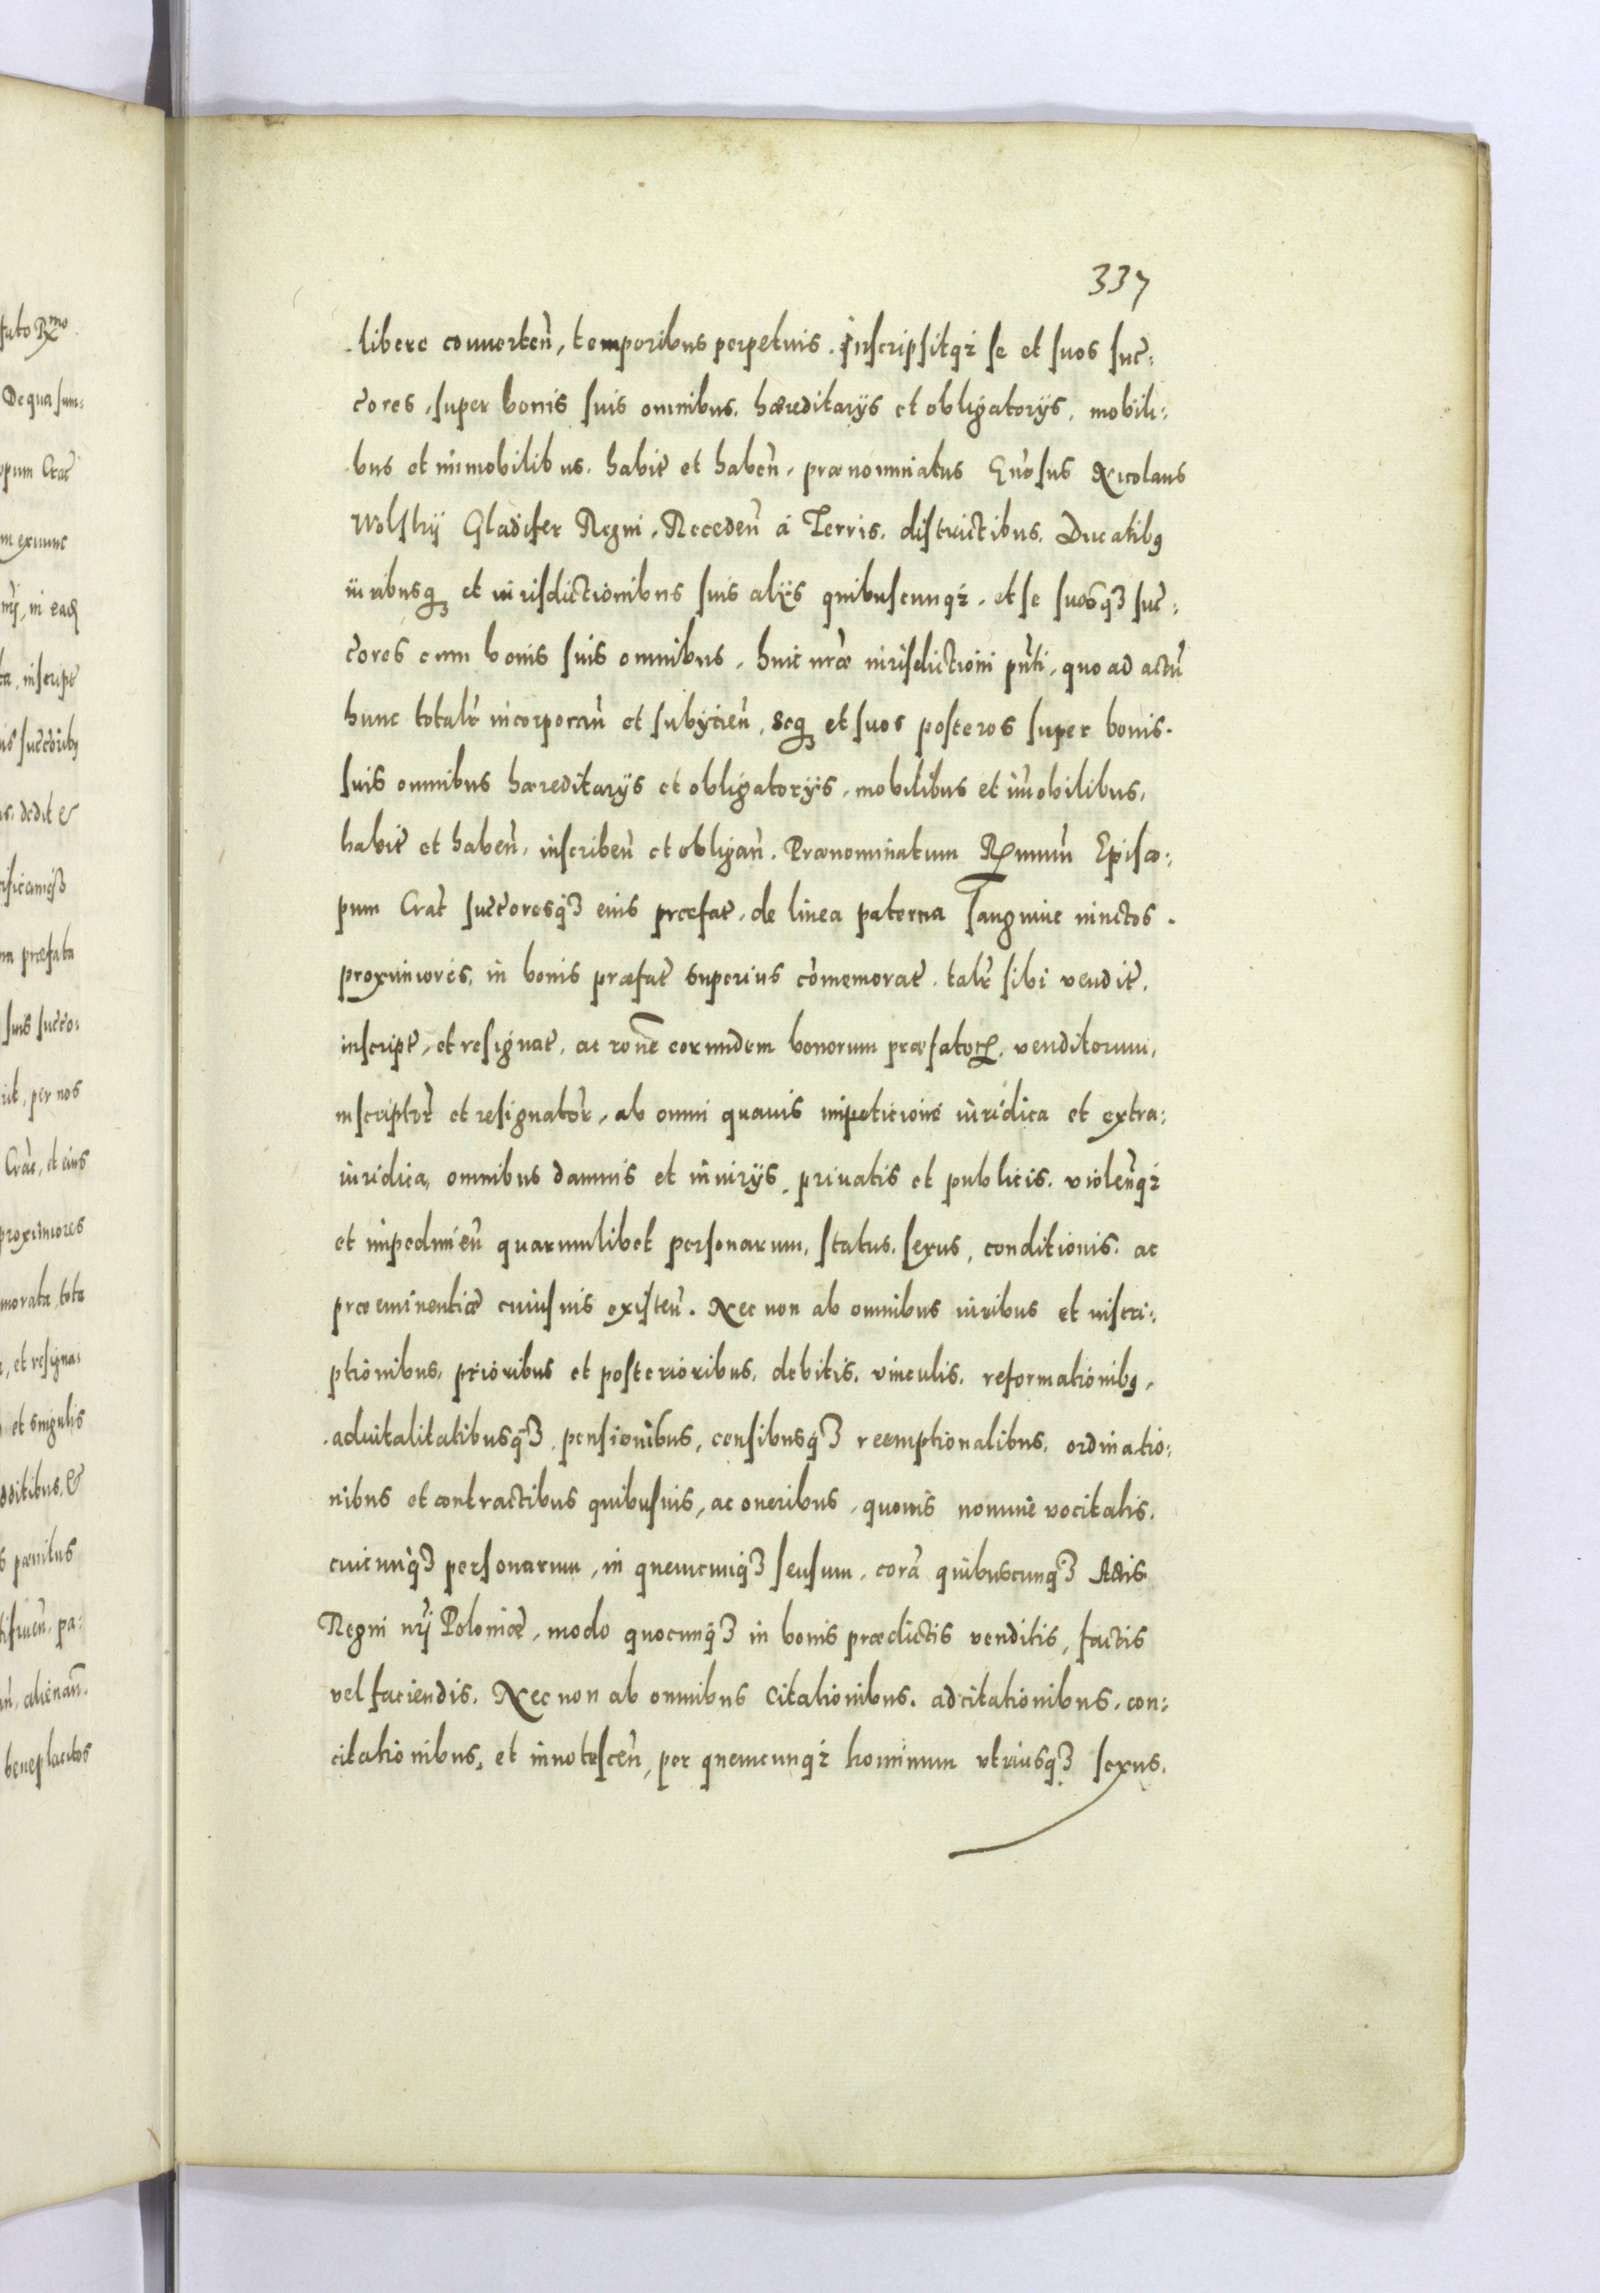 337
libere conuerteñ, temporibus perpetuis. Inscripsitqз se et suos suc̄:
c̄ores, super bonis suis omnibus, hæreditarijs et obligatorijs, mobili:
bus et immobilibus, habit̄ et habeñ, prænominatus Gn̄osus Nicolaus
Wolskij Gladifer Regni, Recedeñ à Terris, districtibus, Ducatibꝯ
iuribusqꝫ et iurisdictionibus suis alijs quibuscunqз, et se suosqꝫ suc̄:
c̄ores cum bonis suis omnibus, huic nr̄æ iurisdictioni pn̄ti, quo ad actū
hunc totalr̄ incorporañ et subijcieñ, seqꝫ et suos posteros super bonis
suis omnibus hæreditarijs et obligatorijs, mobilibus et im̄obilibus,
habit̄ et habeñ, inscribeñ et obligañ. Prænominatum Rm̄um Episco:
pum Crac̄ succ̄oresqꝫ eius præfat̄, de linea paterna sanguine iunctos
proximiores, in bonis præfat̄ superius com̄emorat̄, talr̄ sibi vendit̄,
inscript̄, et resignat̄, ac ron̄e eorundem bonorum præfatorꝝ, venditorum,
inscriptor̄ et resignator̄, ab omni quauis impeticione iuridica et extra:
iuridica, omnibus damnis et iniurijs, priuatis et publicis, violeñqз
et impedimeñ quarumlibet personarum, status, sexus, conditionis, ac
præeminentiæ cuiusuis existeñ. Nec non ab omnibus iuribus et inscri:
ptionibus, prioribus et posterioribus, debitis, vinculis, reformationibꝯ,
aduitalitatibusqꝫ, pensionibus, censibusqꝫ reemptionalibus, ordinatio:
nibus et contractibus quibusuis, ac oneribus, quouis nomine vocitatis,
cuicunqꝫ personarum, in quemcunqꝫ sensum, corā quibuscunqꝫ Actis
Regni nr̄i Poloniæ, modo quocunqꝫ in bonis prædictis venditis, factis
vel faciendis. Nec non ab omnibus citationibus, adcitationibus, con:
citationibus, et innotesceñ, per quemcunqз hominum vtriusqꝫ sexus,